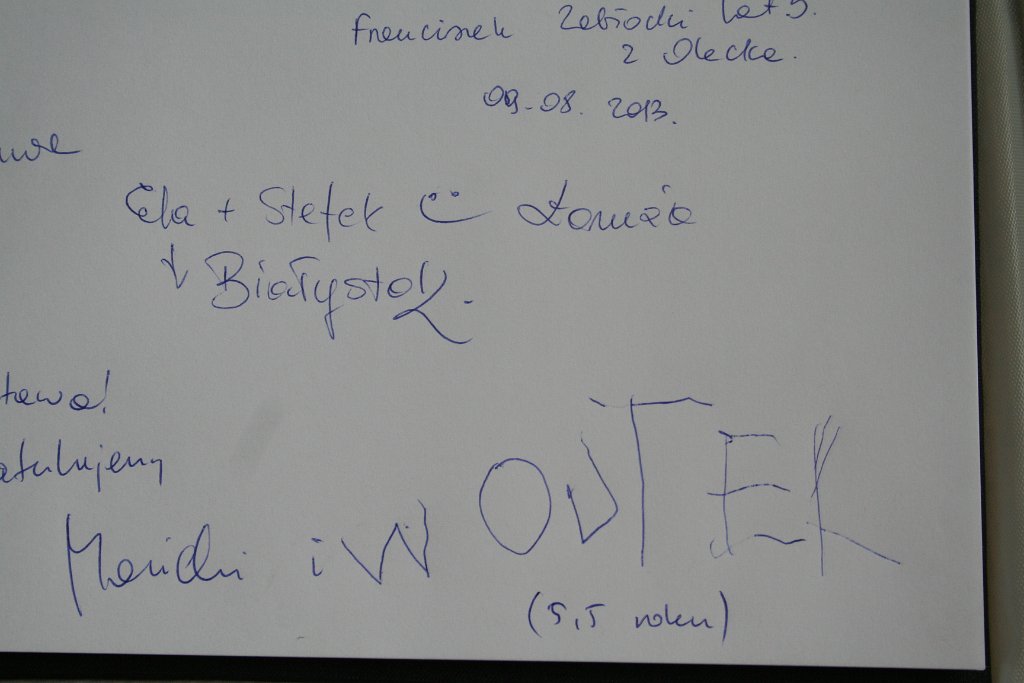 Franciszek Zabłocki lat 9.
z Olecka.
09.08.2013.
Ela + Stefek Łomża
Białystok.
tawa!
atulujemy
i WOJTEK
(5,5 roku)